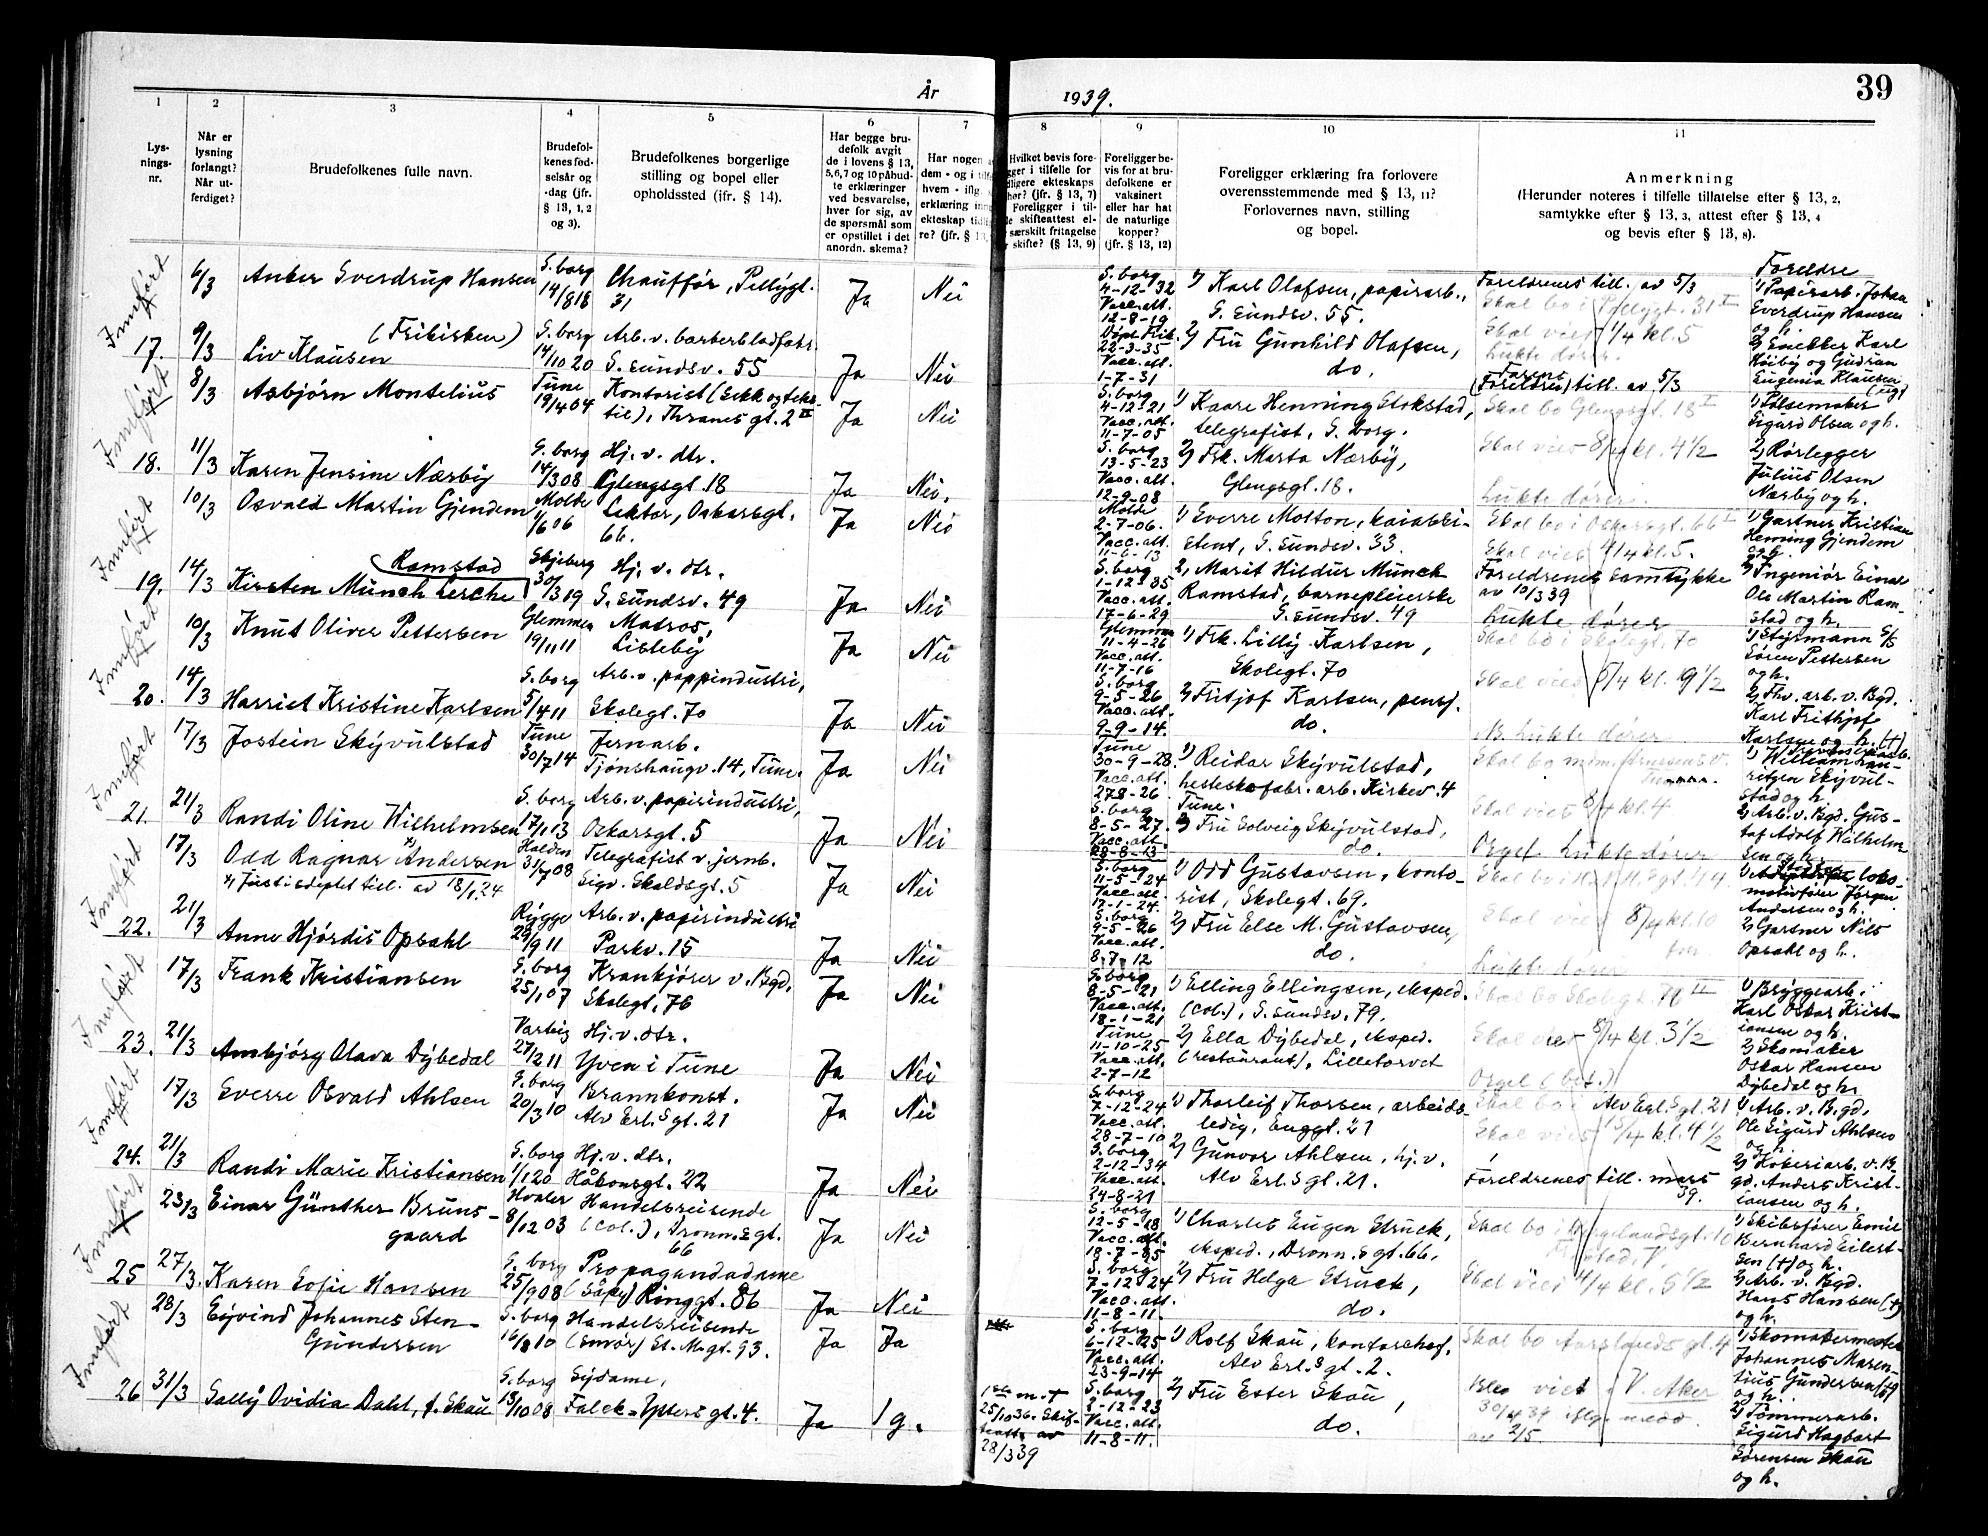 År 1939.
39
1 2 3 4 5 6 7 8 9 10 11
Lys-
nings-
nr.
Når er
lysning
forlangt?
Når ut-
ferdiget?
Brudefolkenes fulle navn.
Brudefol-
kenes fød-
selsår og
-dag (jfr.
§ 13, 1, 2
og 3).
Brudefolkenes borgerlige
stilling og bopel eller
opholdssted (jfr. § 14).
Har begge bru-
defolk avgit
de i lovens § 13,
5, 6, 7 og 10 påbud-
te erklæringer
ved besvarelse,
hver for sig, av
de spørsmål som
er opstillet i det
anordn. skema?
Har nogen
dem - og i
hvem - ifl.
erklæring
ekteskap
re? (jfr. § 13,
Hvilket bevis fore-
gger i tilfelle for
dligere ekteskaps
hør? (jfr. § 13, 7)
Foreligger i til-
e skifteattest el-
særskilt fritagelse
skifte? (§ 13, 9)
Foreligger be-
vis for at bru-
defolkene er
vaksinert
eller har hat
de naturlige
kopper?
(jfr. § 13, 12)
Foreligger erklæring fra forlovere
overensstemmende med § 13, 11?
Forlovernes navn, stilling
og bopel.
Anmerkning
(Herunder noteres i tilfelle tillatelse efter § 13, 2,
samtykke efter § 13, 3, attest efter § 13, 4
og bevis efter § 13, 8).
Innført
17.
6/3 Anker Sverdrup Hansen S.borg 14/8 18 Chauffør, Pellygt. 31 Ja Nei
S.borg 4-12-32 Vacc.att. 12-8-19
1) Karl Olafsen, papirarb., S. Sundsv. 55.
Foreldrenes till. av 5/3
Skal bo i Pellygt. 31 II
Skal vies 1/4 kl. 5
Lukte dører.
Foreldre
1) Papirarb. Johan
Sverdrup Hansen
og h.
9/3 (Frikirken)
Liv Klausen S.borg 14/10 20 Arb. v. barberbladfabr. S. Sundsv. 55 Ja Nei
22-3-35 Vacc.att. 1-7-31
2) Fru Gunhild Olafsen, do.
2) Snekker Karl
Høiby og Gudrun
Eugenia Klausen
Innført
18.
8/3 Asbjørn Montelius Tune 19/4 04 Kontorist Thranes gt. 2 II Ja Nei
S.borg 4-12-21 Vacc.att. 11-7-05
1) Kaare Henning Stokstad, telegrafist, S.borg.
(Foreldres) till. av 5/3
Skal bo Glengsgt. 18 I
Skal vies 8/4 kl. 4 1/2
Lukte dører.
1) Pølsemaker
Sigurd Olsen og h.
11/3 Karen Jensine Nærby S.borg 14/3 08 Hj. v. dtr. Glengsgt. 18 Ja Nei.
S.borg 13-5-23 Vacc.att. 12-9-08
2) Frk. Marta Nærby, Glengsgt. 18.
2) Rørlegger
Julius Olsen
Nærby og h.
Innført
19.
10/3 Osvald Martin Gjendem Molde 1/6 06 Lektor, Oskarsgt. 66. Ja Nei
Molde 2-7-06. Vacc.att. 11-6-13
1) Sverre Molton, S. Sundsv. 33.
Skal bo i Oskarsgt. 66 I
Skal vies 4/4 kl. 5.
Foreldrenes samtykke
av 10/3 39
Lukte dører
1) Gartner Kristian
Henning Gjendem
og h.
14/3 Ramstad
Kirsten Münch Lerche Skjeberg 30/3 19 Hj. v. dtr. S. Sundsv. 49 Ja Nei
S.borg 1-12-35 Vacc.att. 17-6-29
2) Marit Hildur Munch Ramstad, barnepleierske S. Sundsv. 49
2) Ingeniør Einar
Ole Martin Ram-
stad og h.
Innført
20.
10/3 Knut Oliver Pettersen Glemmen 19/11 11 Matros, Lisleby Ja Nei
Glemmen 11-4-26 Vacc.att. 11-7-16
1) Frk. Lilly Karlsen, Skolegt. 70
Skal bo i Skolegt. 70
Skal vies 8/4 kl. 9 1/2
NB. Lukte dører
1) Styrmann S/S
Søren Pettersen
og h.
14/3 Harriet Kristine Karlsen S.borg 5/4 11 Arb. v. pappindustri, Skolegt. 70 Ja Nei
S.borg 9-5-26 Vacc.att. 9-9-14.
2) Fritjof Karlsen, pensj. do.
2) Fhv. arb. v. Bgd.
Karl Frithjof
Karlsen og h. (†)
Innført
21.
17/3 Jostein Skyvulstad Tune 30/7 14 Jernarb. Tjønshaugv. 14, Tune. Ja Nei
Tune 30-9-28. Vacc.att. 27 8-26
1) Reidar Skyvulstad, hesteskofabr. arb. Kirkev. 4 Tune.
Skal vies 8/4 kl. 4
Orgel Lukte dører
1) William Lau-
ritzen Skyvul-
stad og h.
21/3 Randi Oline Wilhelmsen S.borg 17/1 13 Arb. v. papirindustri, Oskarsgt. 5 Ja Nei
S.borg 8-5-27. Vacc.att. 28-8-13
2) Fru Solveig Skyvulstad, do.
2) Arb. v. Bgd. Gus-
taf Adolf Wilhelm-
sen og h.
Innført
22.
17/3 Odd Ragnar x) Andersen
x) Justisdeptet till. av 18/1 24 Halden 31/7 08 Telegrafist v. jernb. Sigv. Skaldsgt. 5 Ja Nei
S.borg 11-5-24 Vacc.att. 12-1-24.
1) Odd Gustavsen, konto-
rist, Skolegt. 69.
Skal vies 8/4 kl. 10
Lukte dører
motivfører Jørgen
Andersen og h.
21/3 Anne Hjørdis Opsahl Rygge 29/9 11 Arb. v. papirindustri Parkv. 15 Ja Nei
S.borg 9-5-26 Vacc.att. 8-7-12
2) Fru Else M. Gustavsen, do.
2) Gartner Nils
Opsahl og h.
Innført
23.
17/3 Frank Kristiansen S.borg 25/1 07 Krankjører v. Bgd. Skolegt. 76 Ja Nei
S.borg 8-5-21 Vacc.att. 18-1-21
1) Elling Ellingsen, eksped. (col.), S. Sundsv. 79.
Skal bo Skolegt. 76 II
Skal vies 8/4 kl. 3 1/2
Orgel (bet.)
1) Bryggearb.
Karl Oskar Krist-
iansen og h.
21/3 Ambjørg Olava Dybedal Varteig 27/2 11 Hj. v. dtr. Yven i Tune Ja Nei
Tune 11-10-25 Vacc.att. 2-7-12
2) Ella Dybedal, eksped. (restaurant), Lilletorvet
2) Skomaker
Oskar Hansen
Dybedal og h.
Innført
24.
17/3 Sverre Osvald Ahlsen S.borg 20/3 10 Brannkonst. Alv Erl.s gt. 21 Ja Nei
S.borg 7-12-24 Vacc.att. 28-7-10
1) Thorleif Thorsen, arbeids-
ledig, Enggt. 27
Skal bo i Alv Erl.s gt. 21
Skal vies 15/4 kl. 4 1/2
Foreldrenes till. mars 39.
1) Arb. v. Bgd.
Ole Sigurd Ahlsen
og h.
21/3 Randi Marie Kristiansen S.borg 1/1 20 Hj. v. dtr. Håkonsgt. 22 Ja Nei
S.borg 2-12-34 Vacc.att. 24-8-21
2) Gunvor Ahlsen, hj. v. Alv Erl.s gt. 21.
2) Kokeriarb. v. B-
gd. Anders Krist-
iansen og h.
Innført
25
23/3 Einar Günther Bruns-
gaard Hvaler 8/12 03 Handelsreisende (col.), Dronn.s gt. 66 Ja Nei
S.borg 12-5-18 Vacc.att. 18-7-05
1) Charles Eugen Struck, eksped., Dronn.s gt. 66.
Skal vies 4/4 kl. 5 1/2
1) Skibsfører Emil
Bernhard Eilert-
sen (†) og h.
27/3. Karen Sofie Hansen S.borg 25/9 08 Propagandadame (Såpe) Ringgt. 86 Ja Nei
S.borg 7-12-24 Vacc.att. 11-8-11.
2) Fru Helga Struck, do.
2) Arb. v. Bgd.
Hans Hansen (†)
og h.
Innført
26
28/3 Eyvind Johannes Sten-
Gundersen S.borg 16/8 10 Handelsreisende (smør) St. M.gt. 93. Ja Ja
S.borg 6-12-25 Vacc.att. 23-9-14
1) Rolf Skau, kontorchef. Alv Erl.s gt. 2.
Blev viet i V. Aker
30/4 39 iflg. medd.
av 2/5.
1) Skomakermester
Johannes Maren-
tius Gundersen
og h.
31/3 Sally Ovidia Dahl, f. Skau S.borg 13/10 08 Sydame, Falck-Ytters gt. 4. Ja 1 g.
25/10 36. Skif-
teatt. av
28/3 39
S.borg 8-12-23 Vacc.att. 11-8-11.
2) Fru Ester Skau, do.
2) Tømmerarb.
Sigurd Hagbart
Sørensen Skau
og h.